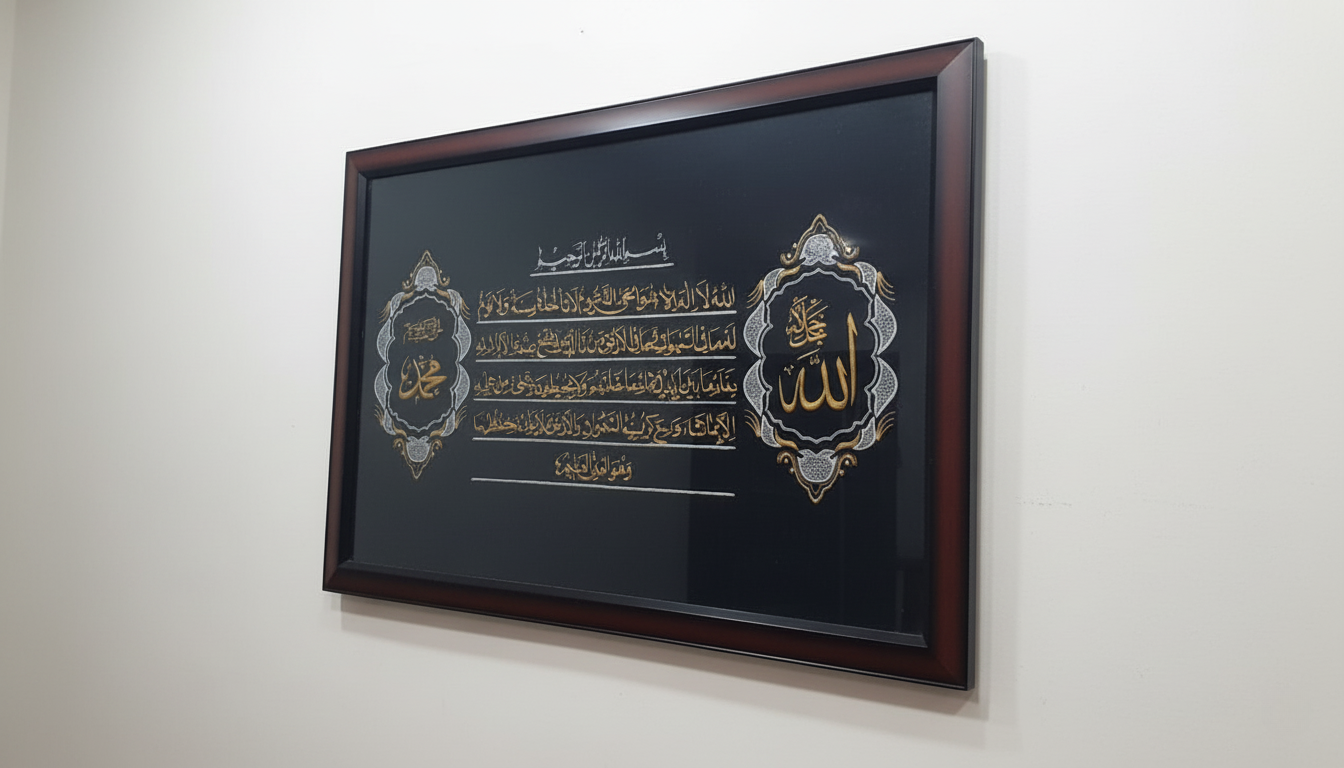 بسم الله الرحمن الرحيم
الله لا اله الا هو الحي القيوم لا تاخذه سنة ولا نوم
له ما في السموات وما في الارض من ذا الذي يشفع عنده الا باذنه
يعلم ما بين ايديهم وما خلفهم ولا يحيطون بشئ من علمه
الا بما شاء وسع كرسيه السموات والارض ولا يؤده حفظهما
وهو العلي العظيم
جل جلاله
الله
محمد